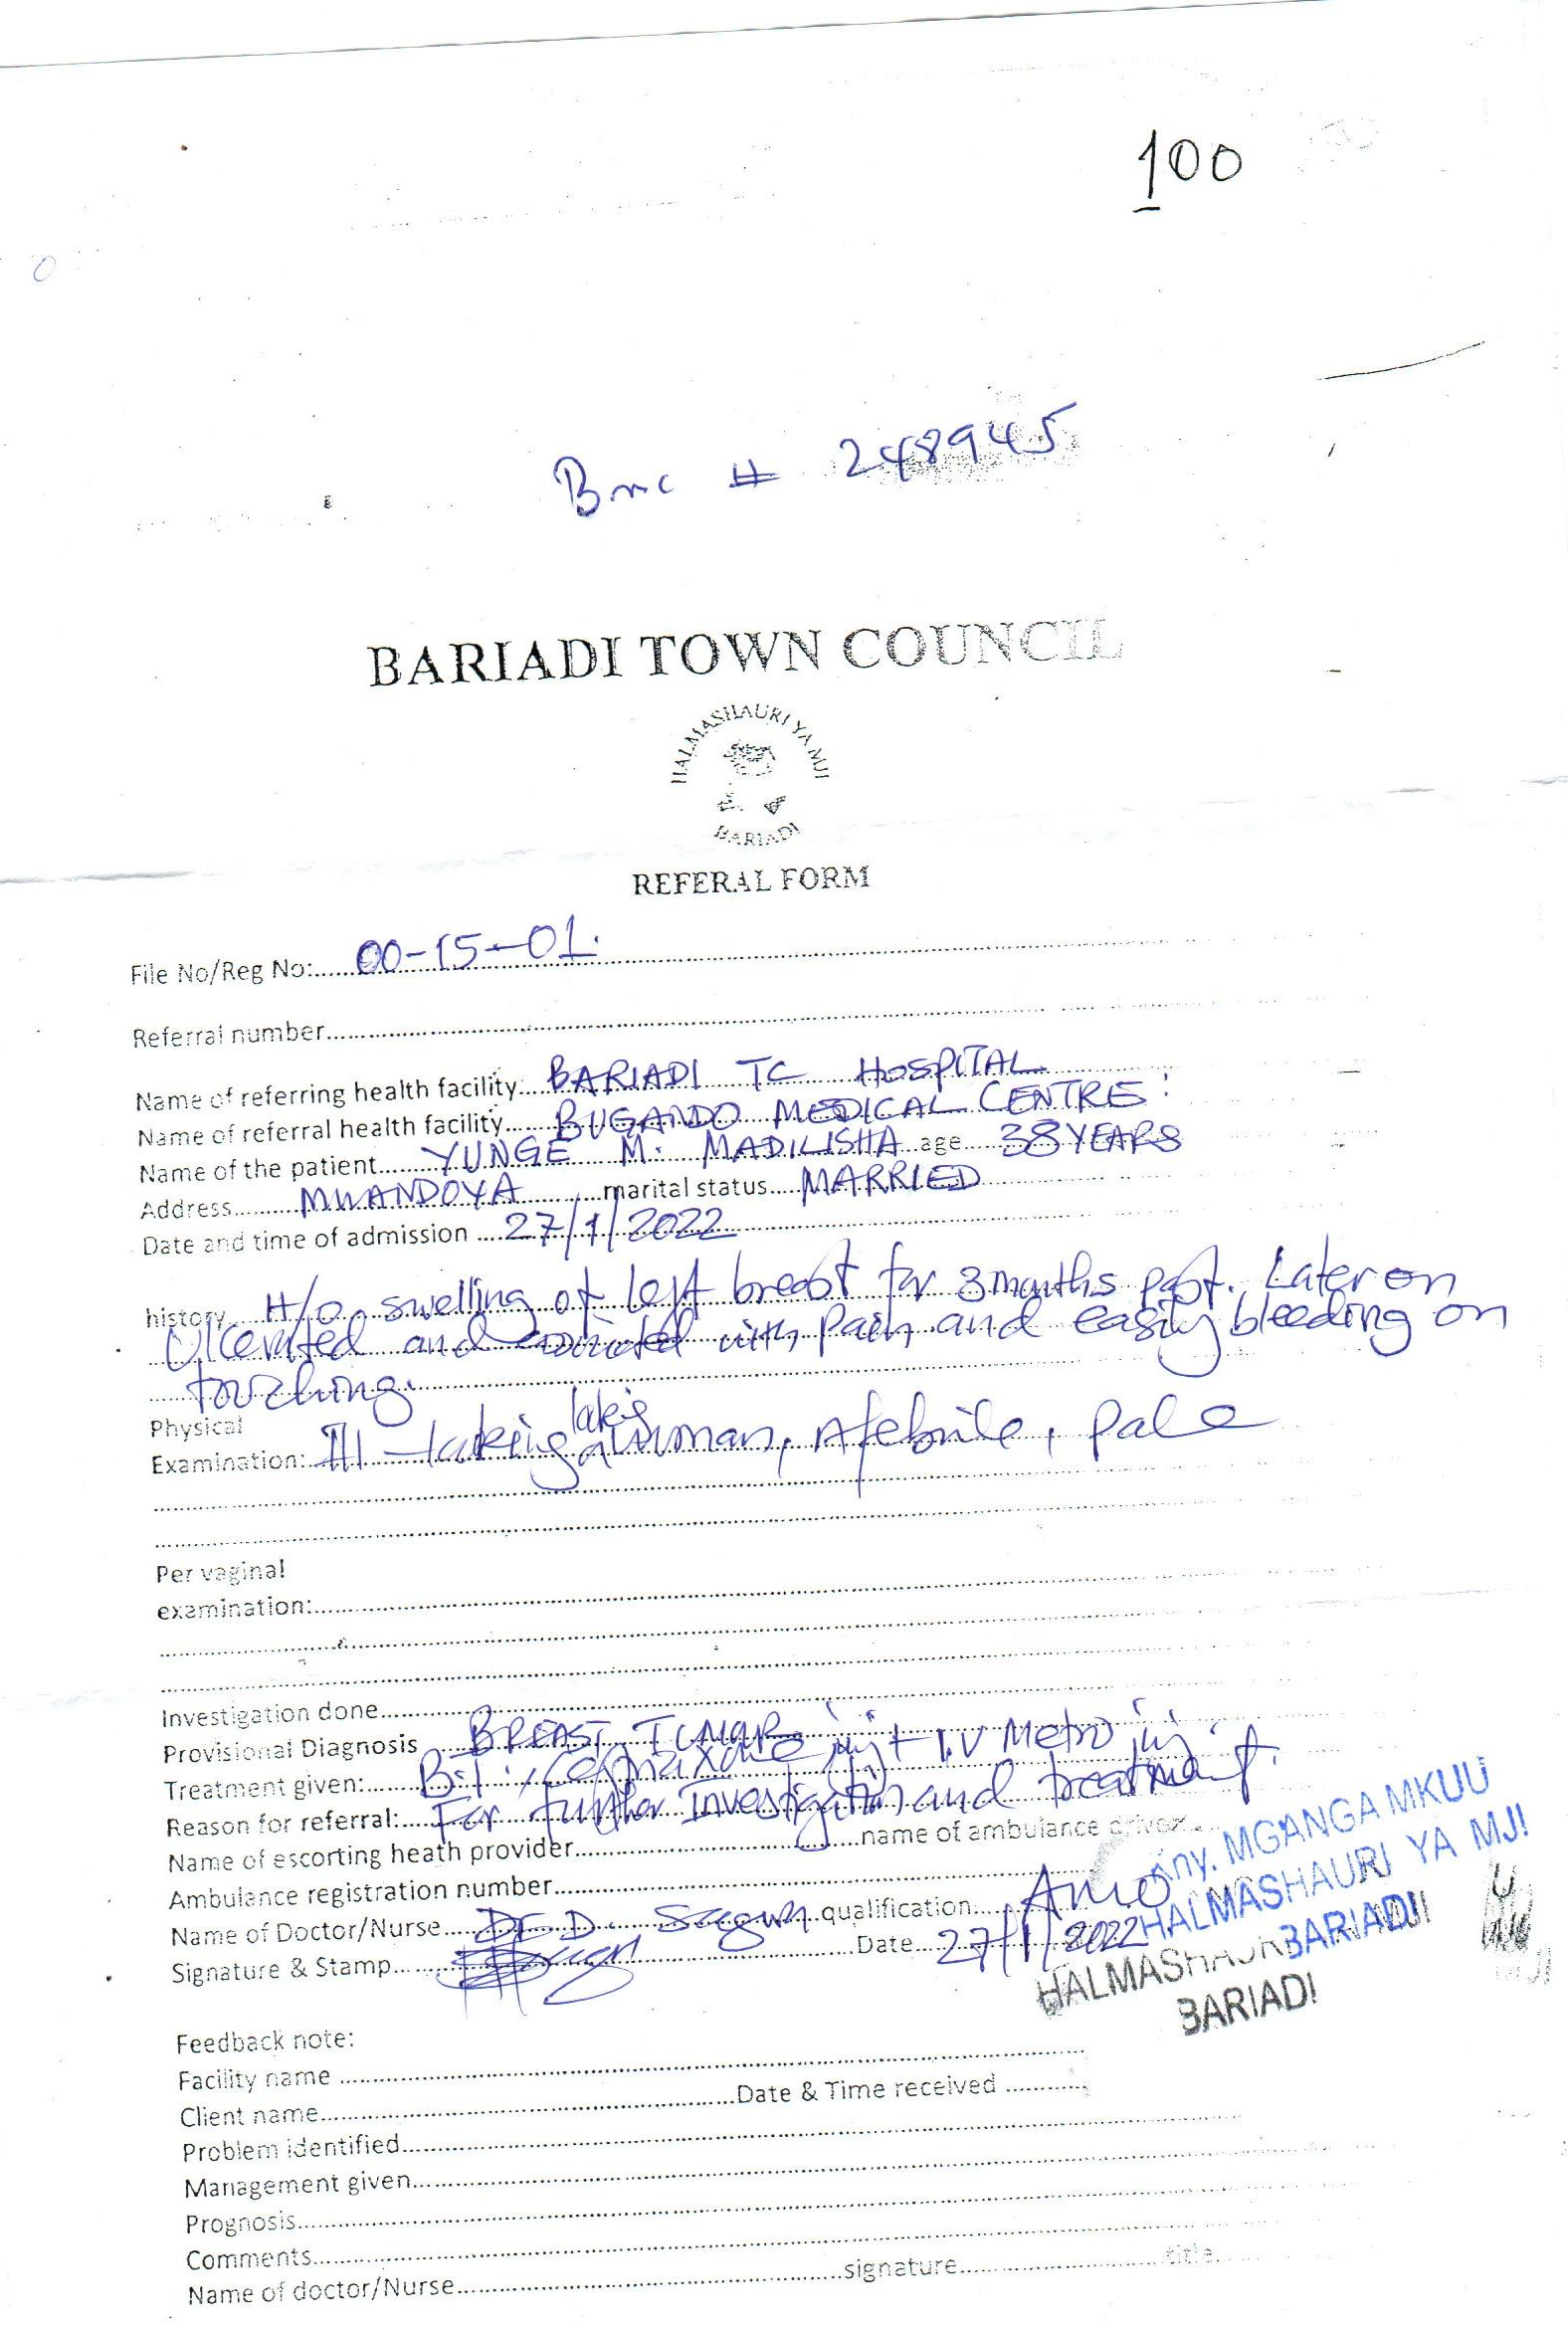 100
Bmc # 248945
BARIADI TOWN COUNCIL
HALMASHAURI YA MJI
BARIADI
REFERAL FORM
File No/Reg No:.....00-15-01.
Referral number
Name of referring health facility: BARIADI TC HOSPITAL
Name of referral health facility BUGANDO MEDICAL CENTRE:
Name of the patient YUNGE M. MADILISHA age 38 YEARS
Address MWANDOYA marital status MARRIED
Date and time of admission 27/1/2022
history H/o swelling of left breast for 3 months past. Later on
Ulcerated and with pain and easily bleeding on
touching.
Physical
Examination: Ill - woman, Afebrile, pale
Per vaginal
examination:
Investigation done
Provisional Diagnosis BREAST TUMOR
Treatment given: inj + I.V Metro inj
Reason for referral: For further Investigation and treatment.
Name of escorting heath provider name of ambulance driver
Ambulance registration number
Name of Doctor/Nurse Dr. D. qualification AMO
Signature & Stamp Date 27/1/2022
Kny. MGANGA MKUU
HALMASHAURI YA MJI
BARIADI
HALMASHAURI
BARIADI
Feedback note:
Facility name
Client name Date & Time received
Problem identified
Management given
Prognosis
Comments
Name of doctor/Nurse signature title